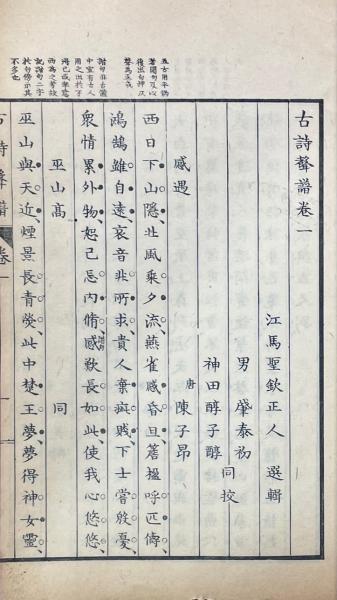 古詩聲譜卷一
江馬聖欽正人 選輯
男 肇泰初
神田醇子醇
同校
感遇 唐 陳子昂
西日下山隱、北風乘夕流、燕雀感昏旦、簷楹呼匹儔、
鴻鵠雖自遠、哀音非所求、貴人棄疵賤、下士嘗殷憂、
衆情累外物、恕己忘内脩、感歎長如此、使我心悠悠、
巫山高 同
巫山與天近、煙景長青熒、此中楚王夢、夢得神女靈、
古詩聲譜 卷一